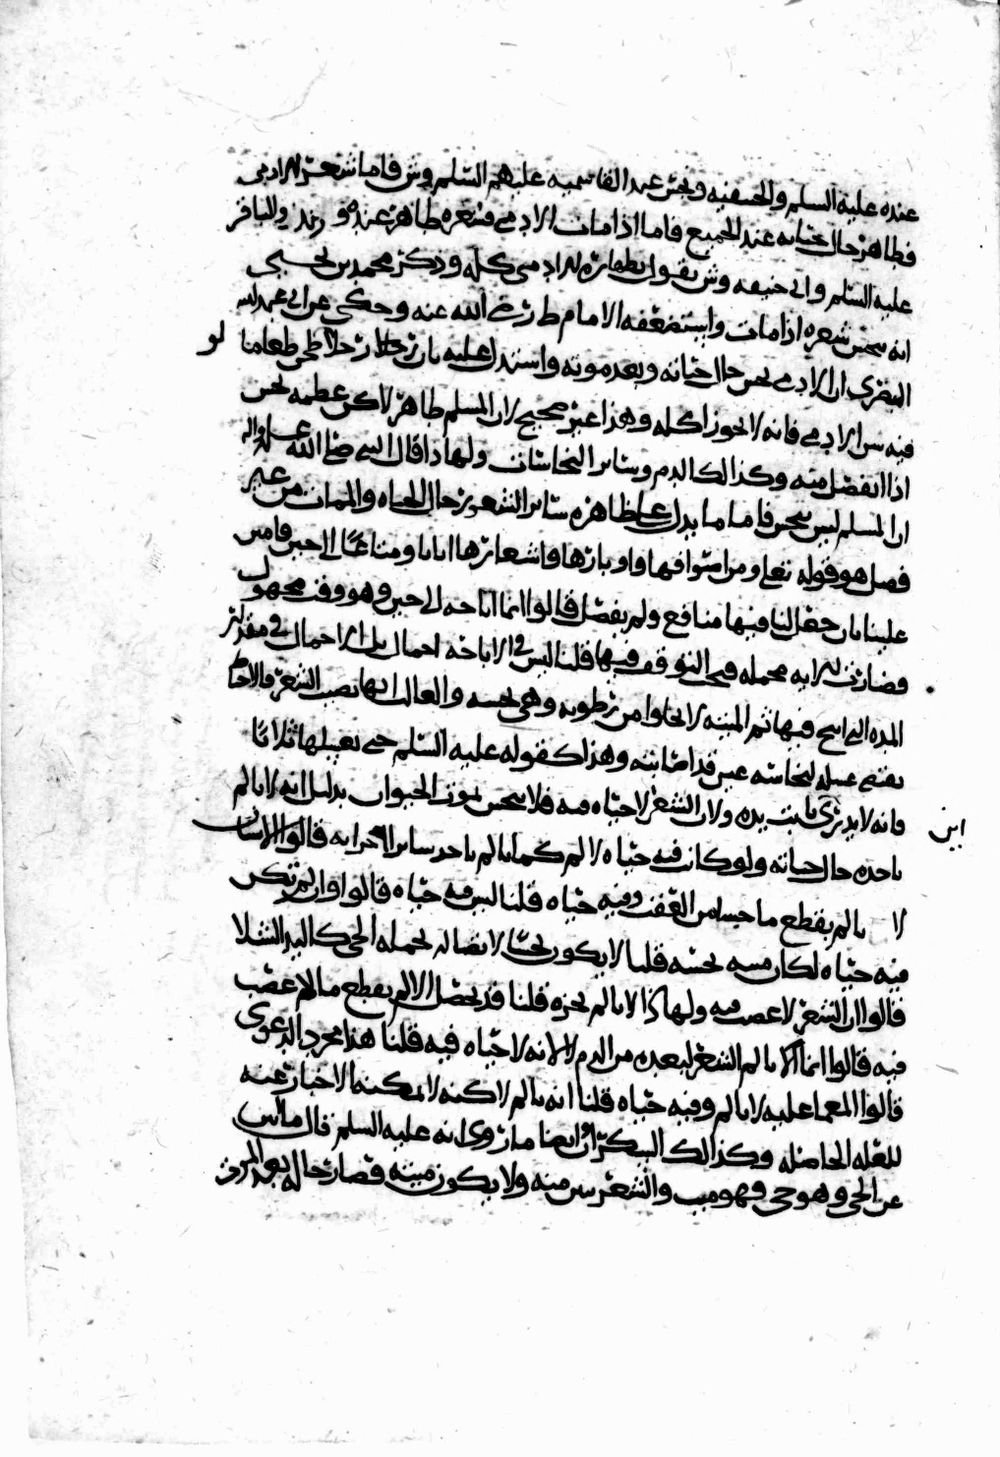 عنده عليه السلم والحنفيه ونجس عند القاسميه عليهم السلم وش فاما شعر الادمي
فطاهر حال حياته عند الجميع فاما اذا مات الادمي فشعره طاهر عنده و زيد والباقر
عليه السلم وابي حنيفه وش بقول بطهارة الادمي كله وذكر محمد بن يحيى
انه نجس شعره اذا مات واستضعفه الامام ط رضي الله عنه وحكي عن ابي عبدالله
البصري ان الادمي نجس حال حياته وبعد موته واستدل عليه بان رجلا طحن طعاما لو
فيه سن الادمي فانه لا يجوز اكله وهذا غير صحيح لان المسلم طاهر لاكن عظمه نجس
اذا انفصل منه وكذلك الدم وسائر النجاسات ولهذا قال النبي صلى الله عليه واله
ان المسلم ليس بنجس فاما ما يدل على طهارة سائر الشعور حال الحياه والممات من غير
فصل هو قوله تعلى ومن اصوافها واوبارها واشعارها اثاثا ومتاعا الى حين فامتن
علينا بان جعل لنا فيها منافع ولم يفصل قالوا انما اباحه الى حين وهو وقت مجهول
فصارت الايه مجمله فيجب التوقف فيها قلنا ليس في الاباحه اجمال بلى الاجمال في مقدار
المده التي ابيح فيها ثم الميته لا تخلوا من رطوبه وهي نجسه والغالب انها تصيب الشعر فالاحتياط
يقتضي غسله لنجاسه عين قد اصابته وهذا كقوله عليه السلم حتى يغسلها ثلاثا
فانه لا يدري اين باتت يده ولان الشعر لا حياه فيه فلا ينجس بموت الحيوان بدليل انه لا يالم
باخذه حال حياته ولو كان فيه حياه لالم كما يالم باخذ سائر اجزايه قالوا الانسان
لا يالم بقطع ما حيسا من العقب وفيه حياه قلنا ليس فيه حياه قالوا وان لم تكن
فيه حياه لكان ميته نجسه قلنا لا يكون نجسا لاتصاله بجمله الحي كاليد الشلا
قالوا ان الشعر لا عصب فيه ولهذا لا يالم بجزه قلنا قد يحصل الالم بقطع ما لا عصب
فيه قالوا انما لا يالم الشعر لبعده من الدم لا لانه لا حياه فيه قلنا هذا مجرد الدعوى
قالوا المغما عليه لا يالم وفيه حياه قلنا انه يالم لاكنه لا يمكنه الاخبار عنه
للعله الحاصله وكذلك السكران وايضا ما روي انه عليه السلم قال ما بين
عن الحي وهو حي فهو ميت والشعر يبين منه ولا يكون ميته فصار حاله بعد الموت